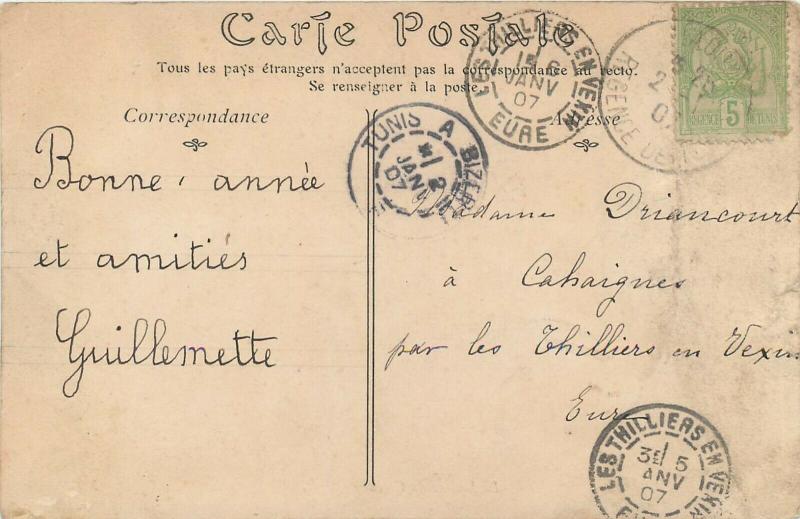 Carte Postale
Tous les pays étrangers n'acceptent pas la correspondance au recto.
Se renseigner à la poste.
Correspondance
Adresse
Bonne année
et amitiés
Guillemette
Madame Driancourt
à Cahaignes
par les Thilliers en Vexin
Eure
LES THILLIERS EN VEXIN
6
JANV
07
EURE
TUNIS A BIZERTE
2
JANV
07
RÉGENCE DE
2
POSTES
5
RÉGENCE DE TUNIS
LES THILLIERS EN VEXIN
3E 5
JANV
07